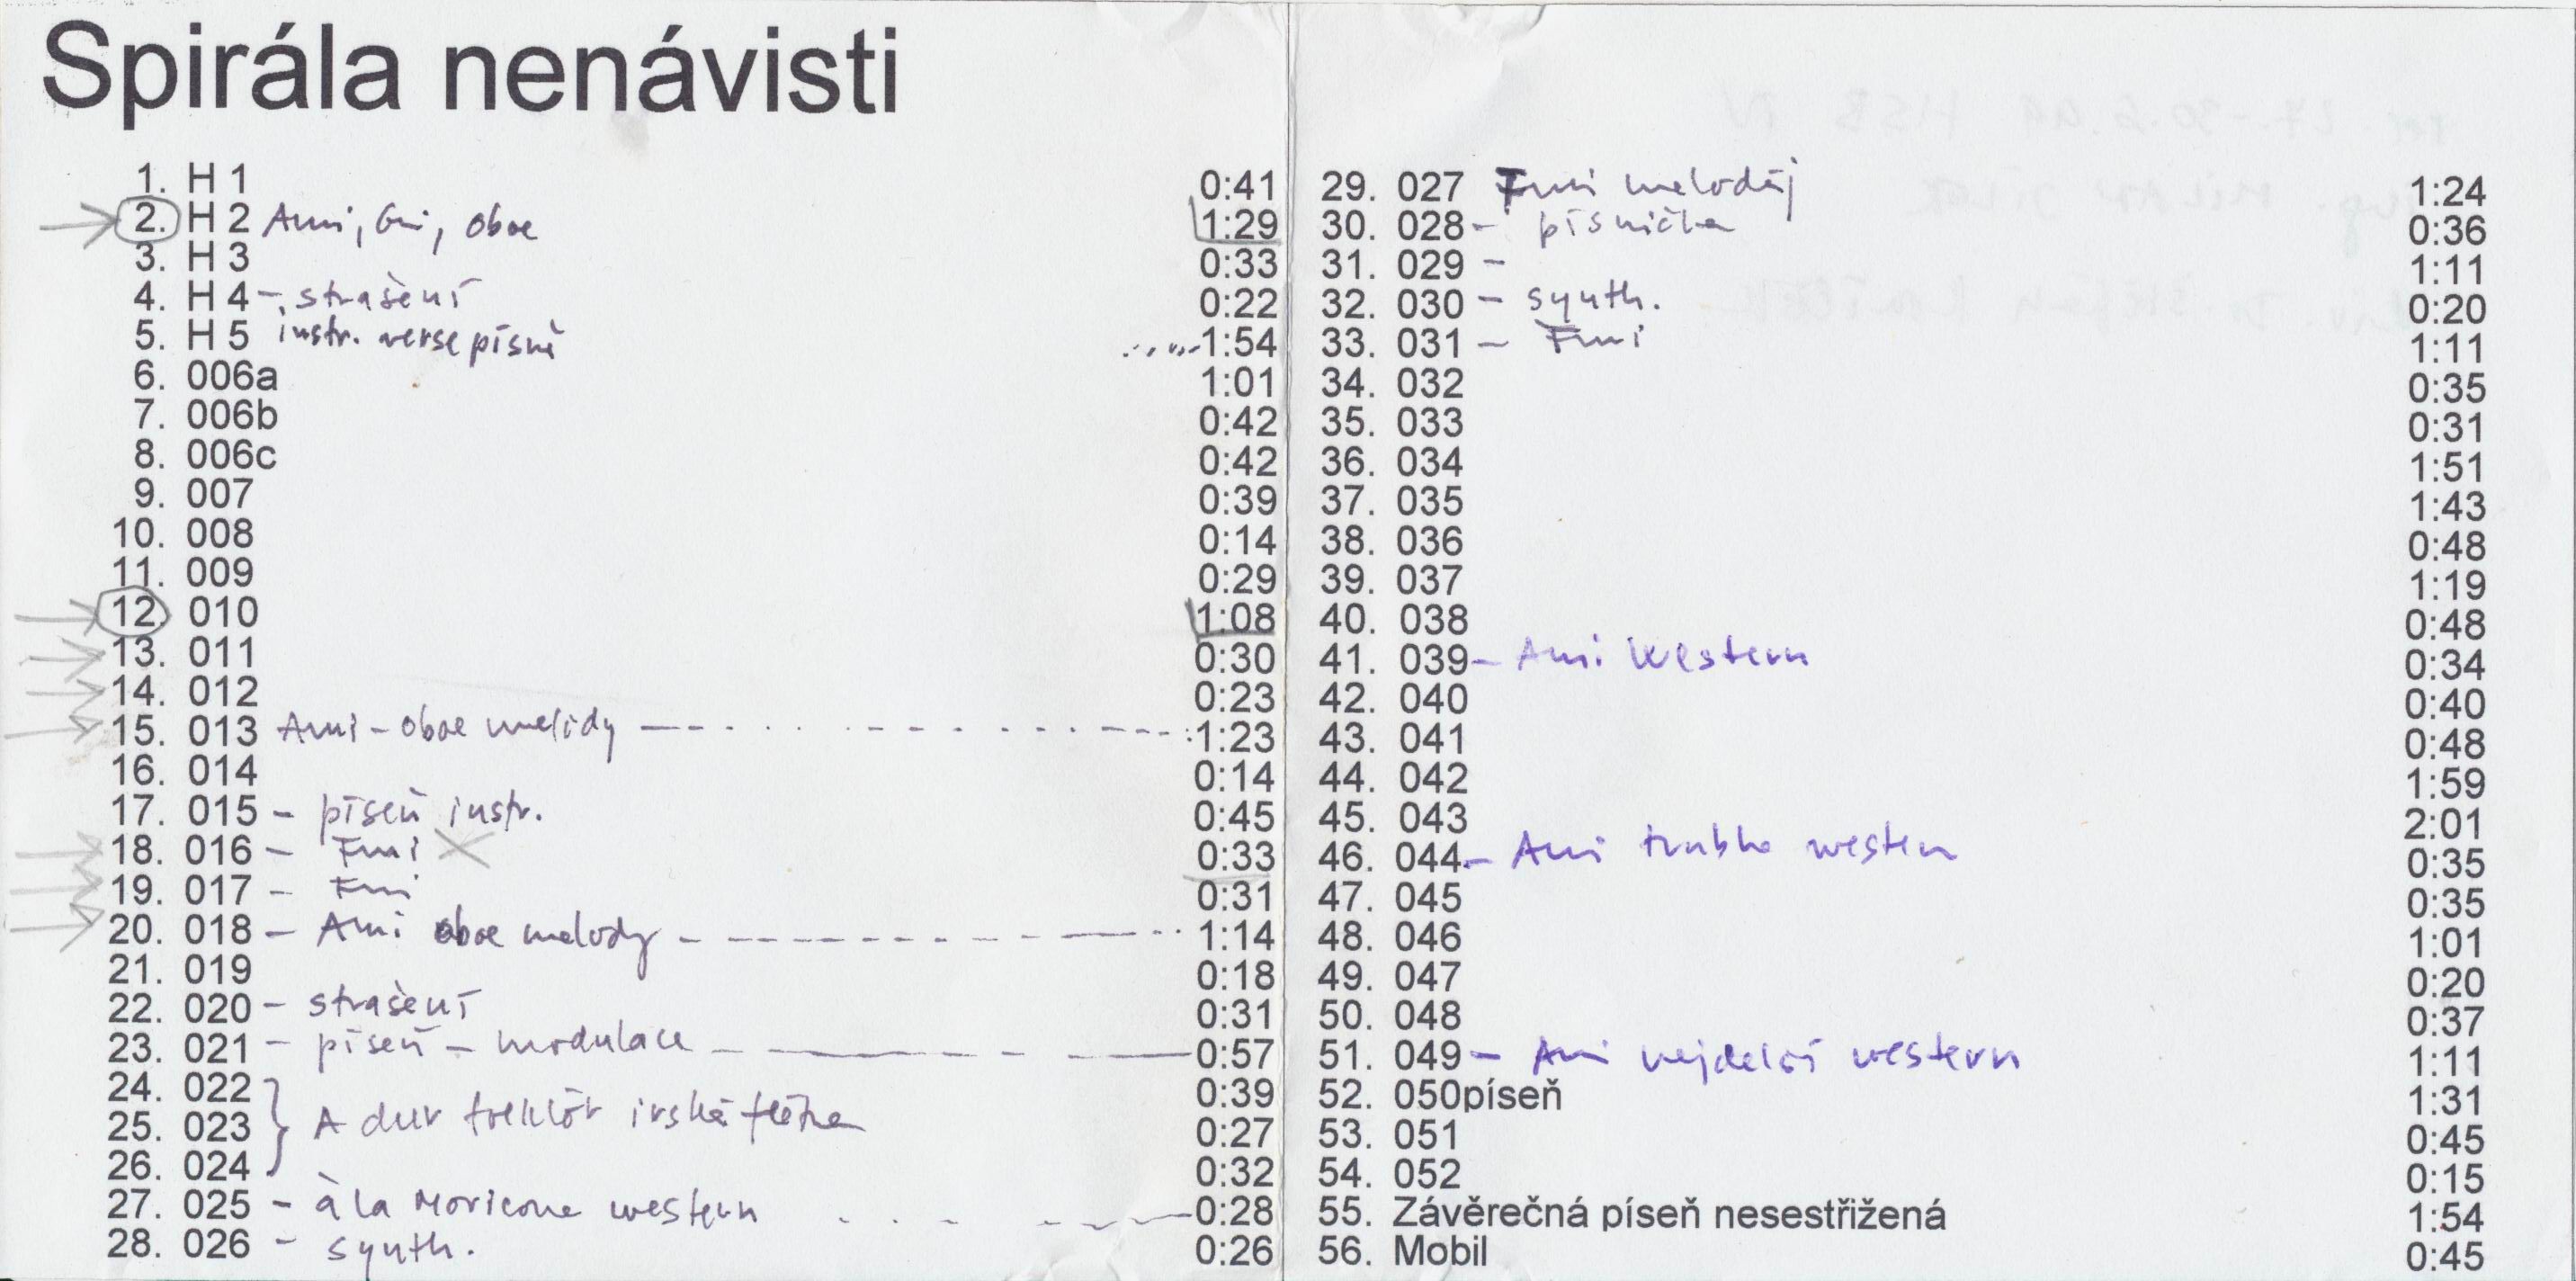 Spirála nenávisti
1. H 1 0:41
2. H 2 Ami, Gmi, oboe 1:29
3. H 3 0:33
4. H 4 - strašení 0:22
5. H 5 instr. verse písně 1:54
6. 006a 1:01
7. 006b 0:42
8. 006c 0:42
9. 007 0:39
10. 008 0:14
11. 009 0:29
12. 010 1:08
13. 011 0:30
14. 012 0:23
15. 013 Ami - oboe melidy 1:23
16. 014 0:14
17. 015 - píseň instr. 0:45
18. 016 - Fmi 0:33
19. 017 - Fmi 0:31
20. 018 - Ami oboe melody 1:14
21. 019 0:18
22. 020 - strašení 0:31
23. 021 - píseň - modulace 0:57
24. 022 0:39
25. 023 } A dur folklór irská flétna 0:27
26. 024 0:32
27. 025 - à la Moricone western 0:28
28. 026 - synth. 0:26
29. 027 Fmi meloděj 1:24
30. 028 - písnička 0:36
31. 029 - 1:11
32. 030 - synth. 0:20
33. 031 - Fmi 1:11
34. 032 0:35
35. 033 0:31
36. 034 1:51
37. 035 1:43
38. 036 0:48
39. 037 1:19
40. 038 0:48
41. 039 - Ami Western 0:34
42. 040 0:40
43. 041 0:48
44. 042 1:59
45. 043 2:01
46. 044 - Ami trubka western 0:35
47. 045 0:35
48. 046 1:01
49. 047 0:20
50. 048 0:37
51. 049 - Ami nejdelší western 1:11
52. 050píseň 1:31
53. 051 0:45
54. 052 0:15
55. Závěrečná píseň nesestřižená 1:54
56. Mobil 0:45